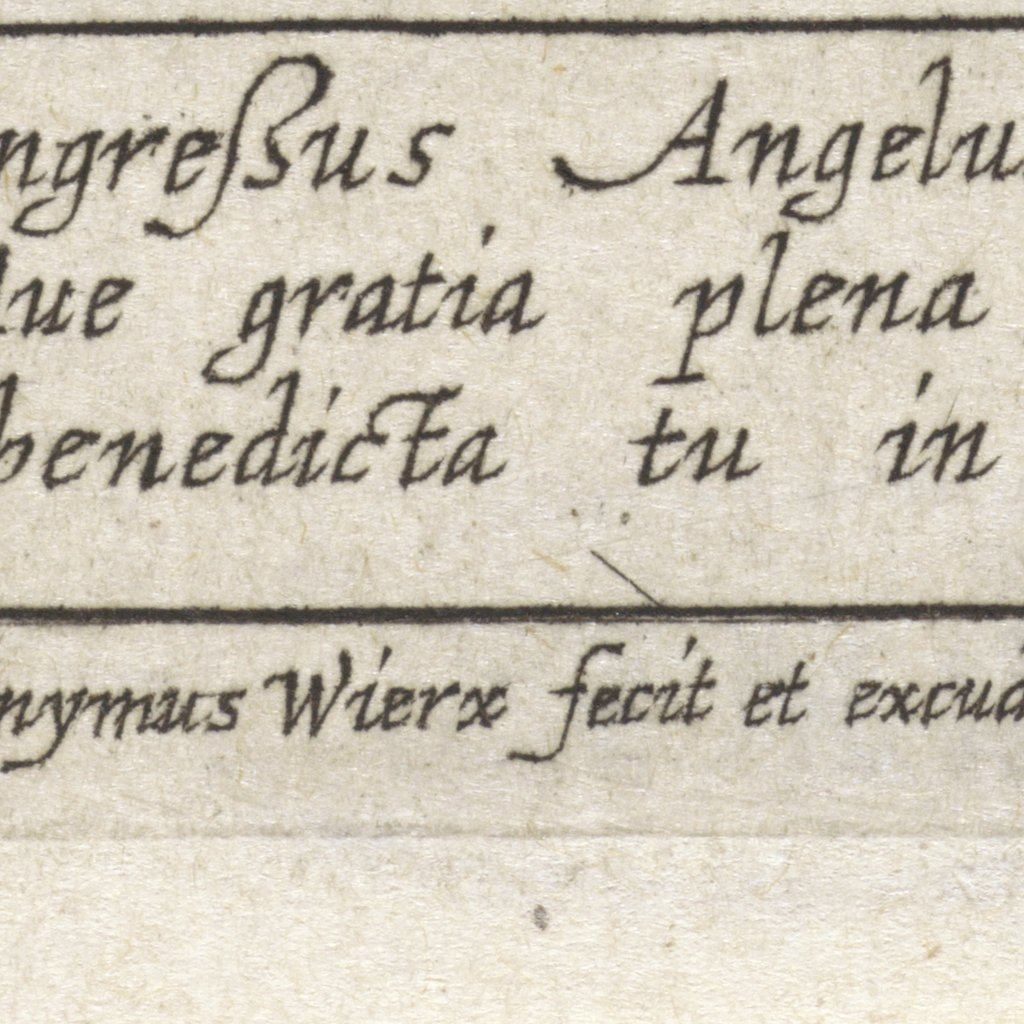 ngreßus Angelu
lue gratia plena
benedicta tu in
nymus Wierx fecit et excud